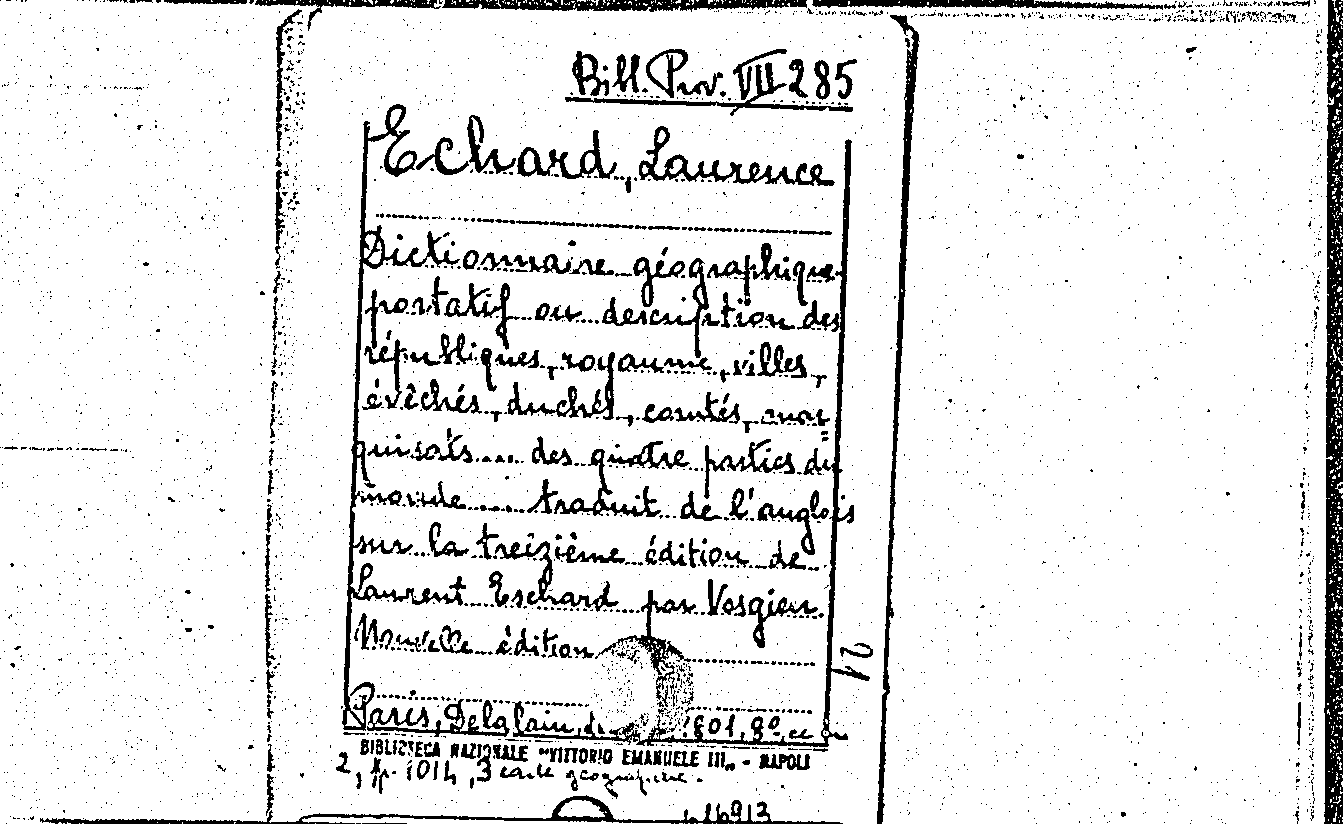 Bibl. Prov. VII 285
Echard, Laurence
Dictionnaire géographique
portatif ou description des
républiques, royaume, villes,
évêchés, duchés, comtés, mar=
quisats... des quatre parties du
monde ... traduit de l'anglois
sur la treizième édition de
Laurent Eschard par Vosgien.
Nouvelle édition
21
Paris, Delalain, 1801, 8º
BIBLIOTECA NAZIONALE "VITTORIO EMANUELE III" - NAPOLI
2, pp. 1014, 3 carte geografiche.